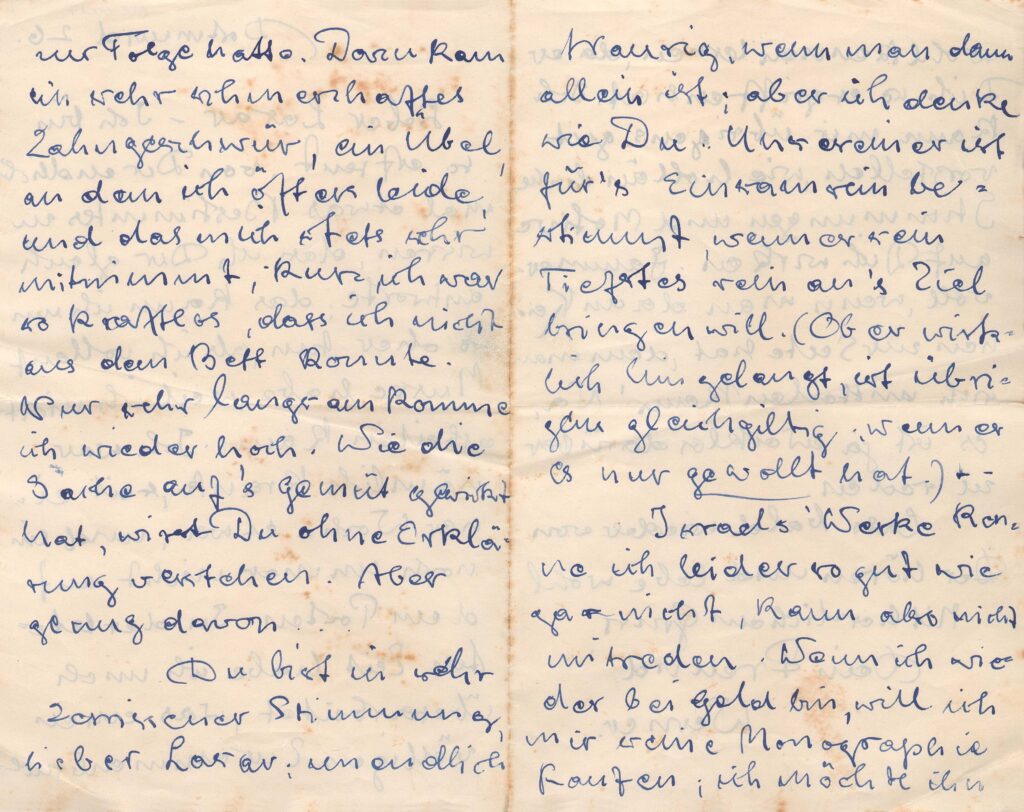 zur Folge hatte. Dazu kam
ein sehr schmerzhaftes
Zahngeschwür, ein Übel,
an dem ich öfters leide,
und das mich stets sehr
mitnimmt; kurz, ich war
so kraftlos, dass ich nicht
aus dem Bett konnte.
Nur sehr langsam komme
ich wieder hoch. Wie die
Sache auf's Gemüt gewirkt
hat, wirst Du ohne Erklä-
rung verstehen. Aber
genug davon...
Du bist in sehr
zerrissener Stimmung,
lieber Lasar; unendlich
traurig, wenn man dann
allein ist; aber ich denke
wie Du: Unsereiner ist
für's Einsamsein be-
stimmt, wenn er sein
Tiefstes rein an's Ziel
bringen will. (Ob er wirk-
lich hingelangt, ist übri-
gens gleichgiltig, wenn er
es nur gewollt hat.) -
Werke ken-
ne ich leider so gut wie
gar nicht, kann also nicht
mitreden. Wenn ich wie-
der bei Geld bin, will ich
mir seine Monographie
kaufen; ich möchte ihn